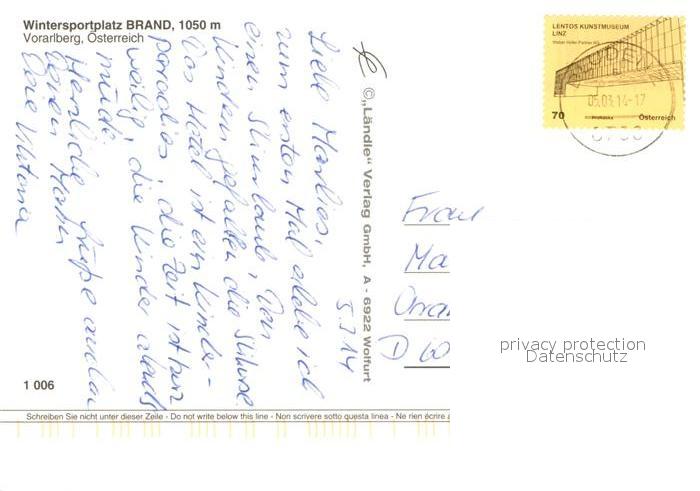 Wintersportplatz BRAND, 1050 m
Vorarlberg, Österreich
5.3.14
Liebe Marlies,
zum ersten Mal erlebe ich
einen Skiurlaub. Den
Kindern gefallen die Skikurse.
Das Hotel ist ein Kinder-
paradies, die Zeit ist kurz
weilig, die Kinder abends
müde.
Herzliche Grüße auch an
Deinen Mann
Deine Viktoria
1 006
© „Ländle" Verlag GmbH, A - 6922 Wolfurt
LENTOS KUNSTMUSEUM
LINZ
Weber Hofer Partner AG
05.03.14-17
70
Österreich
Frau
Ma
D 60
privacy protection
Datenschutz
Schreiben Sie nicht unter dieser Zeile - Do not write below this line - Non scrivere sotto questa linea - Ne rien écrire